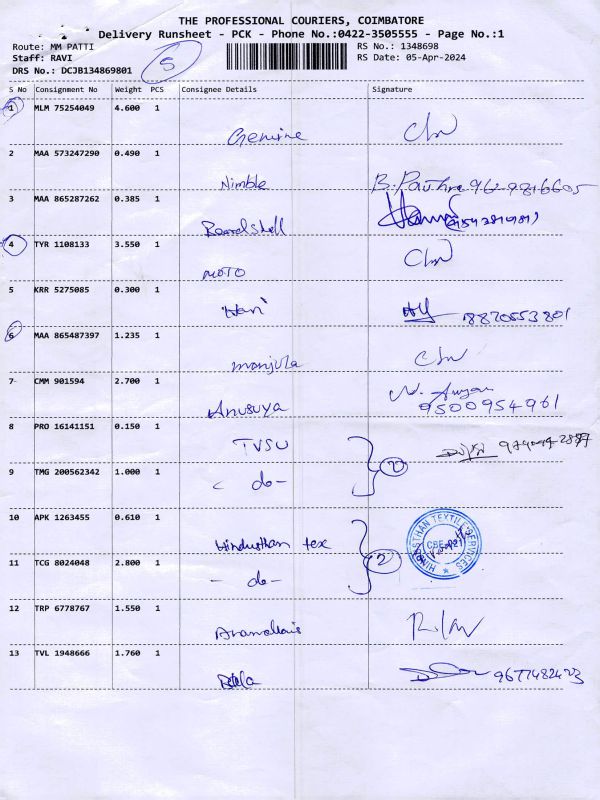 THE PROFESSIONAL COURIERS, COIMBATORE
Delivery Runsheet - PCK - Phone No.:0422-3505555 - Page No.:1
Route: MM PATTI
RS No.: 1348698
Staff: RAVI
RS Date: 05-Apr-2024
DRS No.: DCJB134869801
5
S No Consignment No Weight PCS Consignee Details Signature
1 MLM 75254049 4.600 1
Genuine
2 MAA 573247290 0.490 1
Nimble
3 MAA 865287262 0.385 1
4 TYR 1108133 3.550 1
MOTO
5 KRR 5275085 0.300 1
Hari 8870553801
6 MAA 865487397 1.235 1
manjula
7 CMM 901594 2.700 1
Anusuya 9500954961
8 PRO 16141151 0.150 1
TVSU
9 TMG 200562342 1.000 1
- do - 2
10 APK 1263455 0.610 1
Hindusthan tex
HINDUSTHAN TEXTILE SERVICES
CBE-21
11 TCG 8024048 2.800 1
- do - 2
12 TRP 6778767 1.550 1
13 TVL 1948666 1.760 1
9677482423